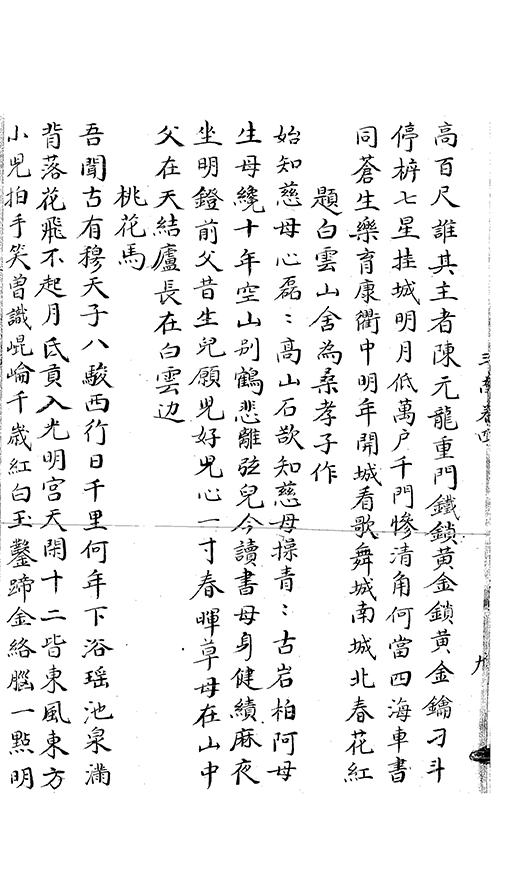 高百尺誰其主者陳元龍重門鐵鎖黃金鎖黃金鑰刁斗
停柝七星挂城明月低萬户千門慘清角何當四海車書
同蒼生樂育康衢中明年開城看歌舞城南城北春花紅
題白雲山舍為桑孝子作
始知慈母心磊〻高山石欲知慈母操青〻古岩柏阿母
生母纔十年空山别鶴悲離弦兒今讀書母身健績麻夜
坐明鐙前父昔生兒願兒好兒心一寸春暉草母在山中
父在天結廬長在白雲边
桃花馬
吾聞古有穆天子八駿西行日千里何年下浴瑶池泉滿
背落花飛不起月氏貢入光明宫天閑十二皆東風東方
小兒拍手笑曾識崐崘千歲紅白玉鑿蹄金絡腦一點明